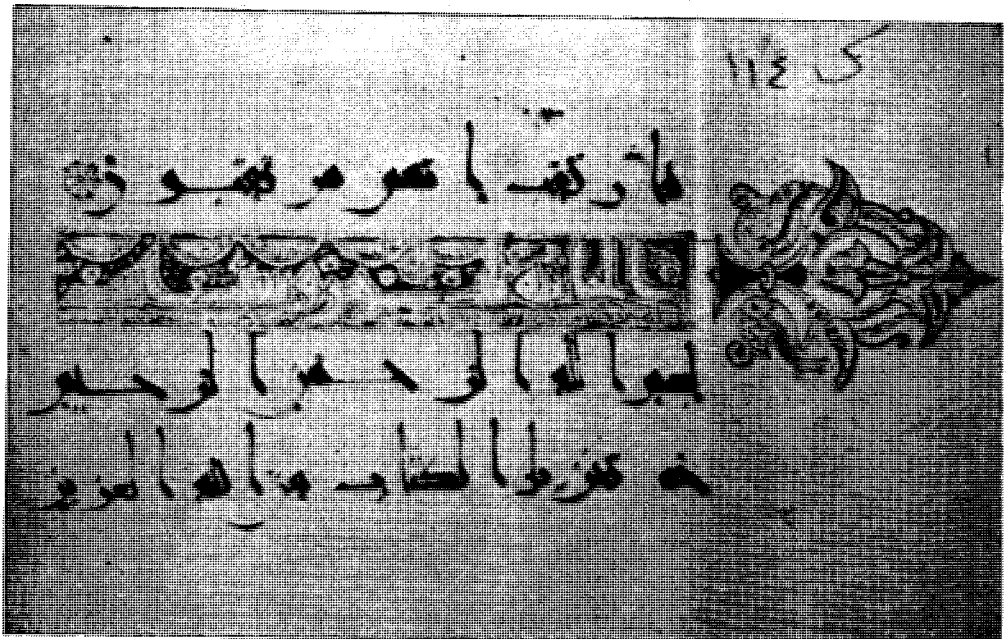 ك ١١٤
فارتقب انهم مرتقبون
بسم الله الرحمن الرحيم
حم تنزيل الكتاب من الله العزيز